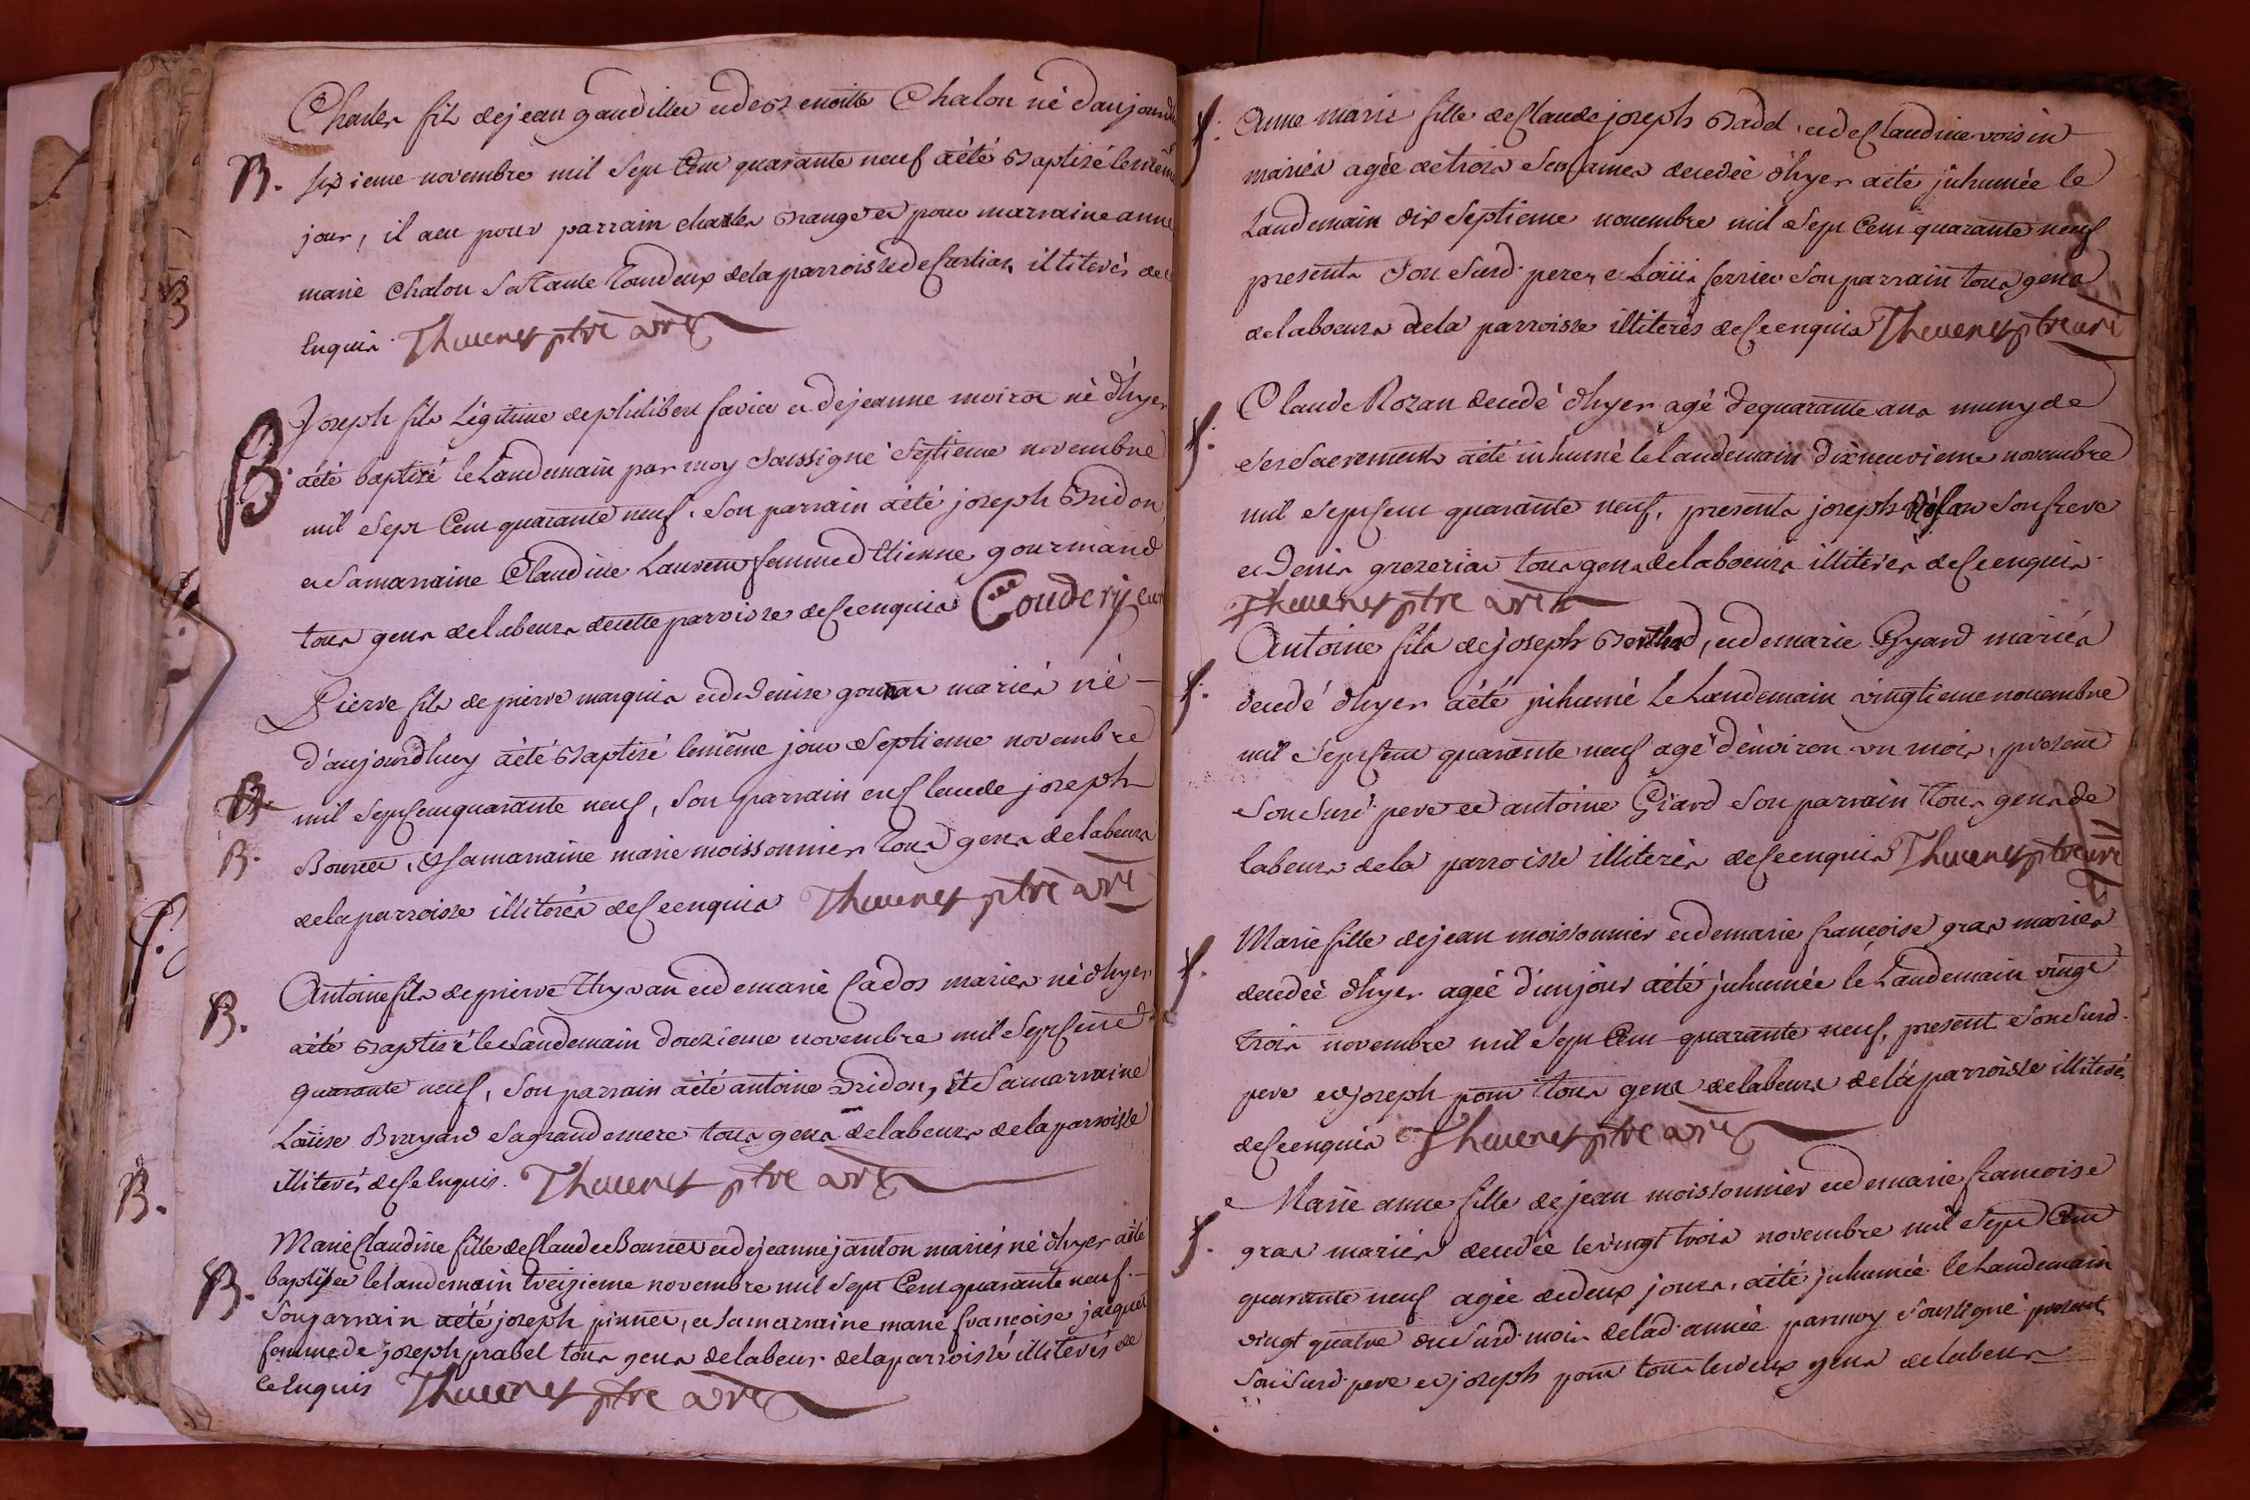 Charles fils de jean gaudillier et de Benoitte Chalon né d'aujourdhuy
B. sixieme novembre mil sept Cent quarante neuf a été Baptisé le même
jour, il a eu pour parrain charles Branger et pour marraine anne
marie Chalon sa Tante Tous deux de la parroisse de illiterés de ce
Enquis. Thevenet ptre vic
Joseph fils Légitime de philibert favier et de jeanne moiroc né d'hyer
B. a été baptisé le Landemain par moy soussigné septieme novembre
mil sept Cent quarante neuf. son parrain a été joseph Bridon
et sa marraine Claudine Laurent femme d'Etienne gourmand
tous gens de labeurs de cette parroisse de ce enquis Couderj curé
Pierre fils de pierre marquis et de denise mariés né
d'aujourdhuy a été Baptisé le même jour septieme novembre
B. mil sept cent quarante neuf, son parrain est claude joseph
B. Bourcet, et sa marraine marie moissonnier tous gens de labeurs
de la parroisse illiterés de ce enquis Thevenet ptre vic
Antoine fils de pierre et de marie Cados mariés né d'hyer
B. a été Baptisé le Landemain douzieme novembre mil sept cent
quarante neuf, son parrain a été antoine Bridon, et sa marraine
Loüise Bruyard sa grande mere tous gens de labeurs de la parroisse
illiterés de ce Enquis. Thevenet ptre vic
Marie Claudine fille de Claude Bourcet et de jeanne janton mariés né d'hyer a été
B. baptisée le landemain treizieme novembre mil sept Cent quarante neuf.
son parrain a été joseph pinnet, et sa marraine marie francoise jacquet
femme de joseph prabel tous gens de labeur. de la parroisse illiterés de
ce Enquis Thevenet ptre vic
f. Anne marie fille de Claude joseph Badel, et de Claudine voisin
mariés agée de trois semaines decedée d'hyer a été inhumée le
Landemain dix septieme novembre mil sept Cent quarante neuf
presents son susd. pere, et Loüis ferrier son parrain tous gens
de laboeurs de la parroisse illiterés de ce enquis Thevenet ptre vic
Claude Rozan decedé d'hyer agé de quarante ans muny de
f. ses sacrements a été inhumé le landemain dixneuvieme novembre
mil sept cent quarante neuf, presents joseph son frere
et denis grezerias tous gens de laboeurs illiterés de ce enquis.
Thevenet ptre vic
Antoine fils de joseph Berthod, et de marie Gyard mariés
f. decedé d'hyer a été inhumé le Landemain vingtieme novembre
mil sept cent quarante neuf agé d'environ un mois, present
son susd. pere et antoine Giard son parrain Tous gens de
labeurs de la parroisse illiterés de ce enquis Thevenet ptre vic
Marie fille de jean moissonnier et de marie francoise gras mariés
f. decedée d'hyer agée d'un jour a été inhumée le Landemain vingt
trois novembre mil sept Cent quarante neuf, present son susd.
pere et joseph pom tous gens de labeurs de la parroisse illiterés
de ce enquis Thevenet ptre vic
Marie anne fille de jean moissonnier et de marie francoise
f. gras mariés decedée le vingt trois novembre mil sept Cent
quarante neuf agée de deux jours, a été inhumée le Landemain
vingt quatre du susd. mois de lad. année par moy soussigné present
son susd. pere et joseph pom tous les deux gens de labeurs